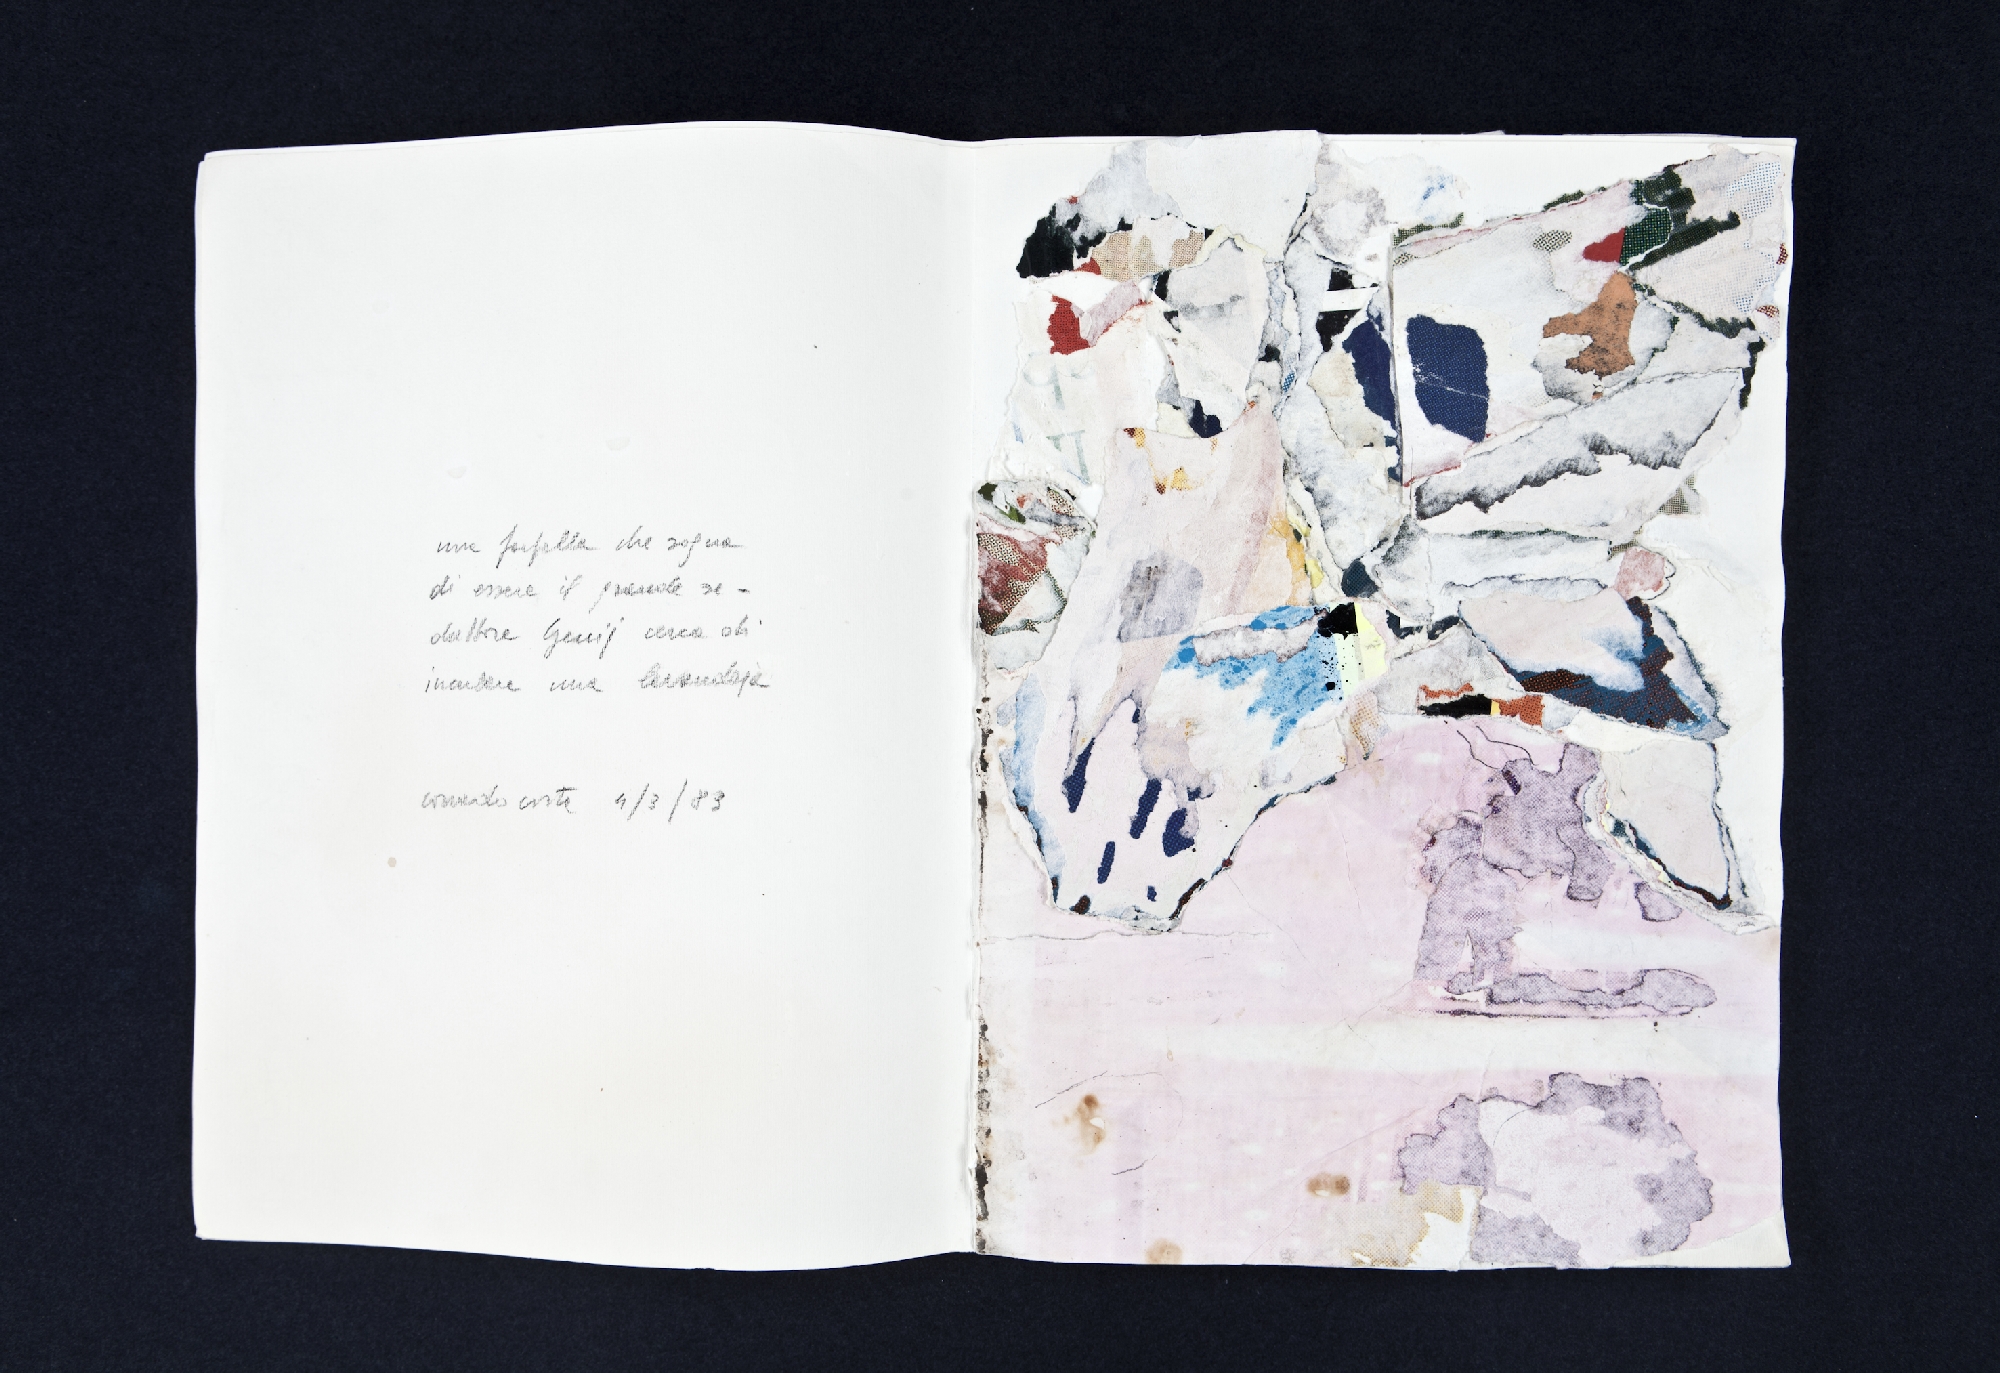 una farfalla che sogna
di essere il grande se-
duttore Genij cerca di
incantare una lavandaja
corrado costa 4/3/83